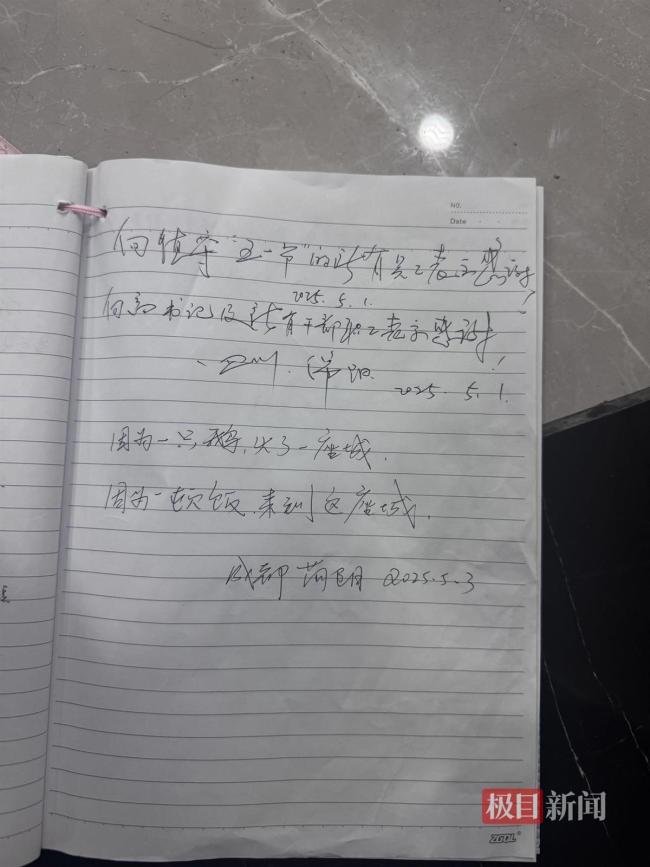 NO.
Date
向值守"五一节"的所有员工表示感谢!
2025.5.1.
向高书记及所有干部职工表示感谢!
四川.绵阳
2025.5.1.
因为一只鹅,火了一座城.
因为一顿饭,来到这座城.
成都 2025.5.3
极目新闻